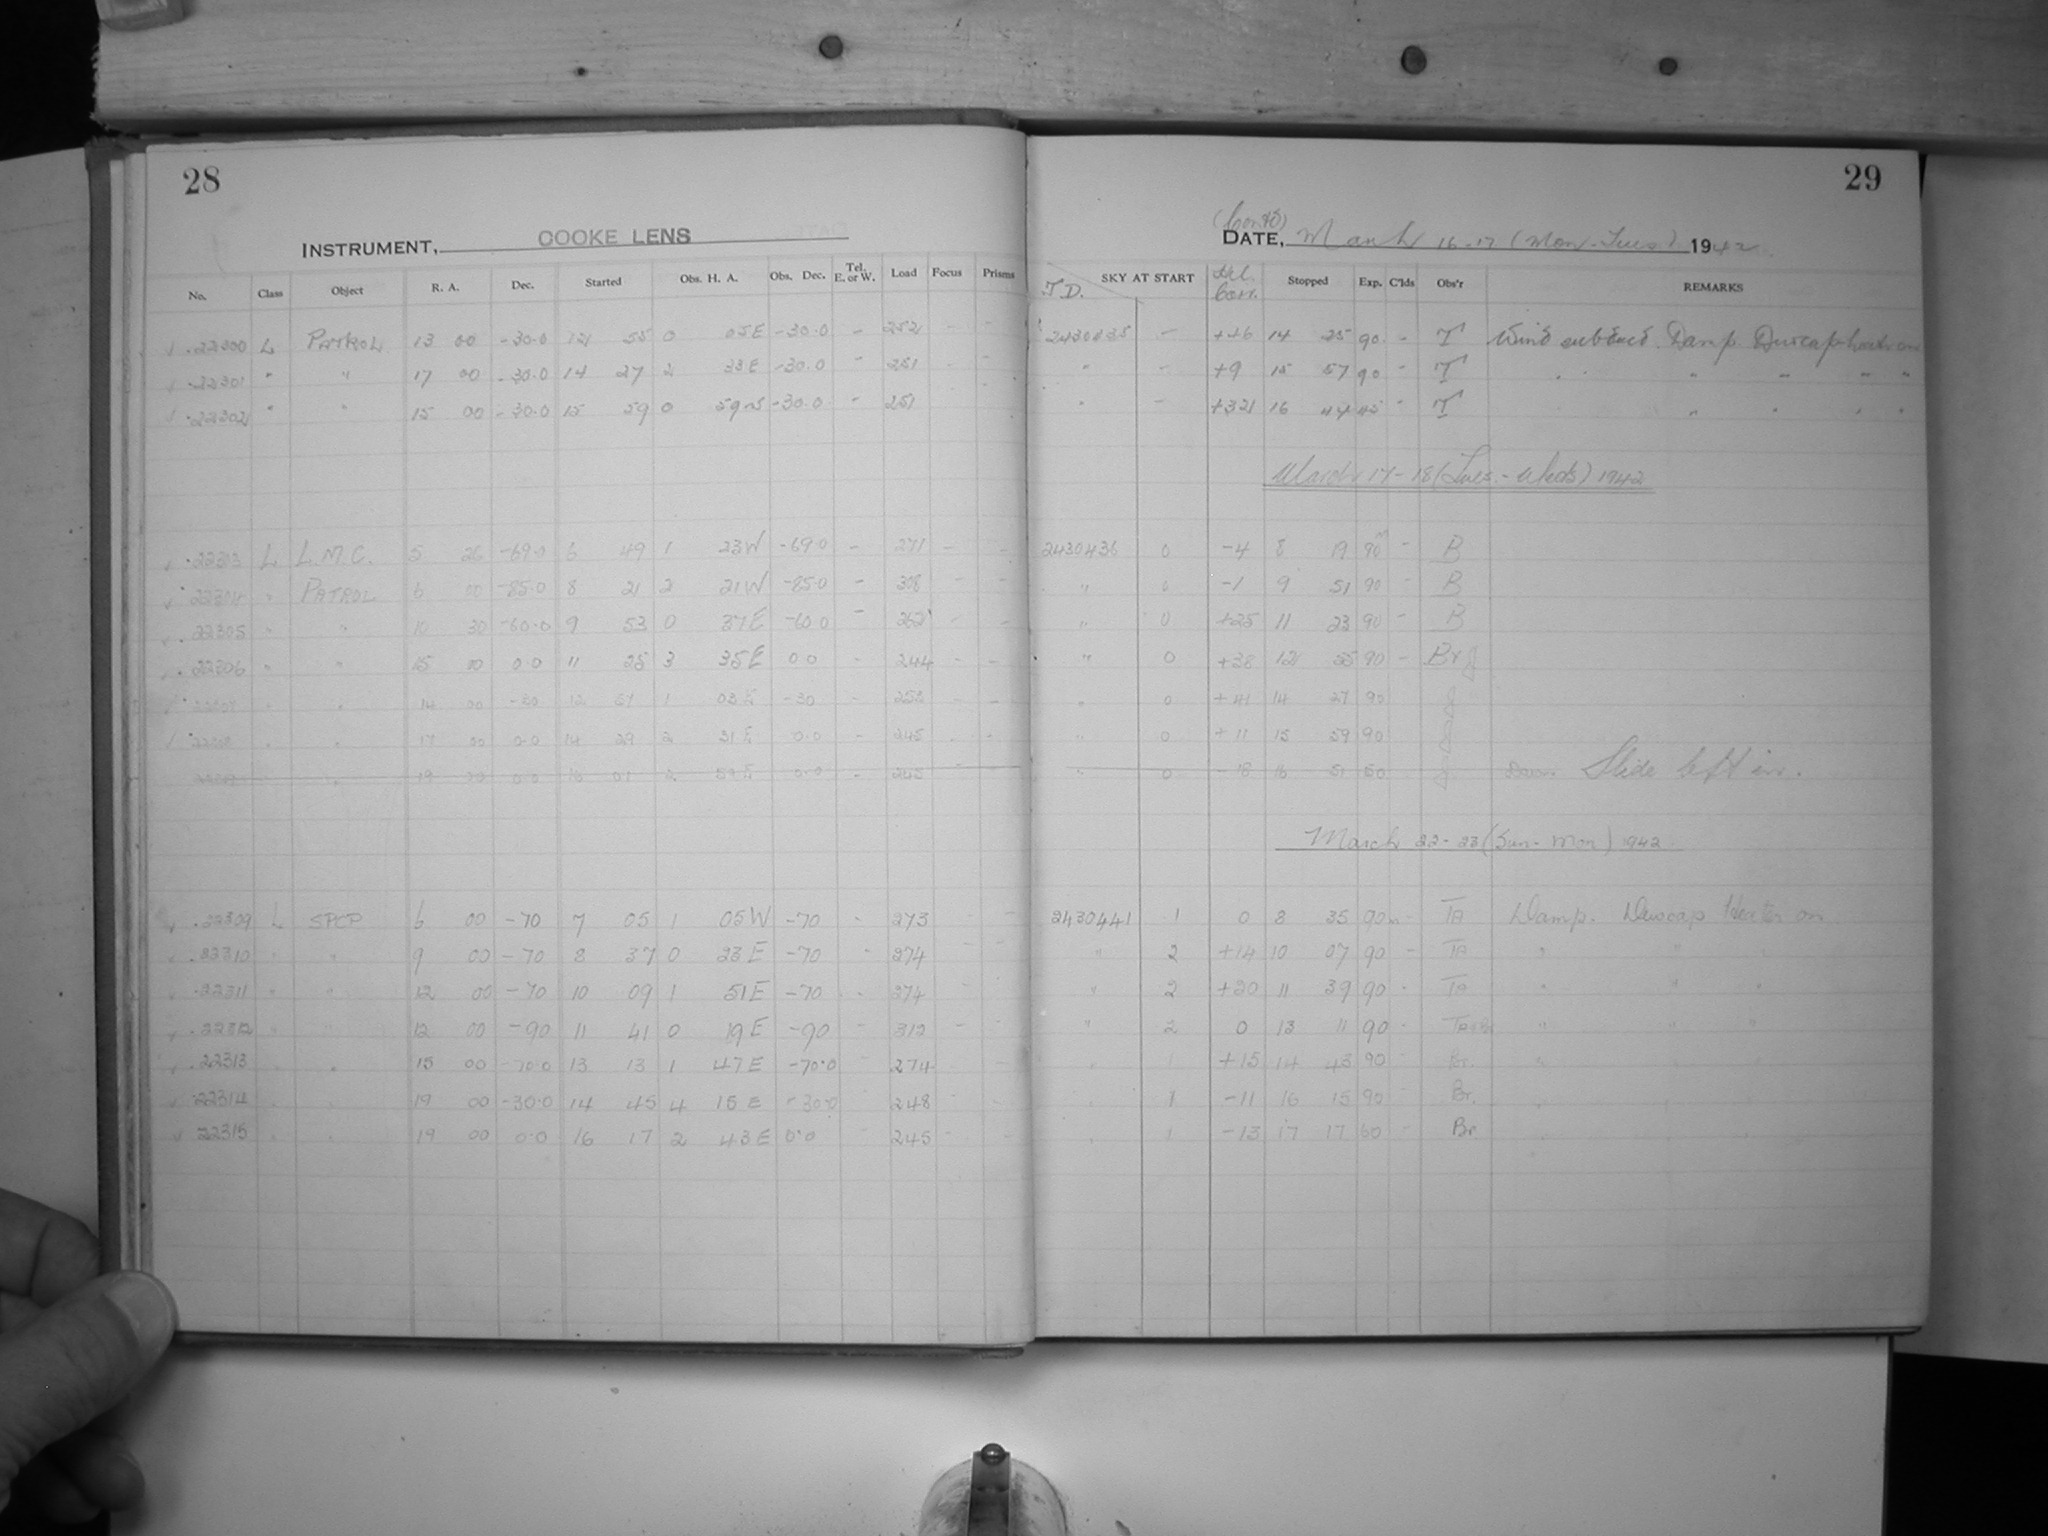 28
INSTRUMENT, COOKE LENS
No. Class Object R. A. Dec. Started Obs. H. A. Obs. Dec. Tel. E. or W. Load Focus Prisms
22300 L PATROL 13 00 -30.0 12 55 0 05E -30.0 - 252 - -
22301 " " 17 00 -30.0 14 27 2 33E -30.0 - 251
22302 " " 15 00 -30.0 15 59 0 59W -30.0 - 251
22303 L L.M.C. 5 26 -69.0 6 49 1 23W -69.0 - 271 - -
22304 " PATROL 6 00 -85.0 8 21 2 21W -85.0 - 308 - -
22305 " " 10 30 -60.0 9 53 0 37E -60.0 - 262 - -
22306 " " 15 00 0.0 11 25 3 35E 0.0 - 244 - -
22307 " " 14 00 -30 12 57 1 03E -30 - 253 - -
22308 " " 17 00 0.0 14 29 2 31E 0.0 - 245 - -
" 19 00 0.0 16 01 2 59E 0.0 - 245
22309 L SPCP 6 00 -70 7 05 1 05W -70 - 273 - -
22310 " " 9 00 -70 8 37 0 23E -70 - 274 - -
22311 " " 12 00 -70 10 09 1 51E -70 - 274 - -
22312 " " 12 00 -90 11 41 0 19E -90 - 312 - -
22313 " " 15 00 -70.0 13 13 1 47E -70.0 - 274 - -
22314 " " 19 00 -30.0 14 45 4 15E -30.0 - 248 - -
22315 " " 19 00 0.0 16 17 2 43E 0.0 - 245 - -
29
(Contd)
DATE, March 16-17 (Mon-Tues) 1942
J.D. SKY AT START Corr. Stopped Exp. C'lds Obs'r REMARKS
2430435 - +46 14 25 90 - T Wind subdued. Damp. Dewcap heater on
" - +9 15 57 90 - T " " " "
" - +321 16 44 45 - T " " " "
March 17-18 (Tues.-Weds) 1942
2430436 0 -4 8 19 90 - B
" 0 -1 9 51 90 - B
" 0 +25 11 23 90 - B
" 0 +38 12 55 90 - Br
" 0 +41 14 27 90
" 0 +11 15 59 90
" 0 -18 16 51 50 Slide left in.
March 22-23 (Sun-Mon) 1942
2430441 1 0 8 35 90 - TA Damp. Dewcap Heater on
" 2 +14 10 07 90 - TA " " "
" 2 +20 11 39 90 - TA " " "
" 2 0 13 11 90 - " " "
" 1 +15 14 43 90 - Br. " " "
" 1 -11 16 15 90 - Br. " " "
" 1 -13 17 17 60 - Br. " " "